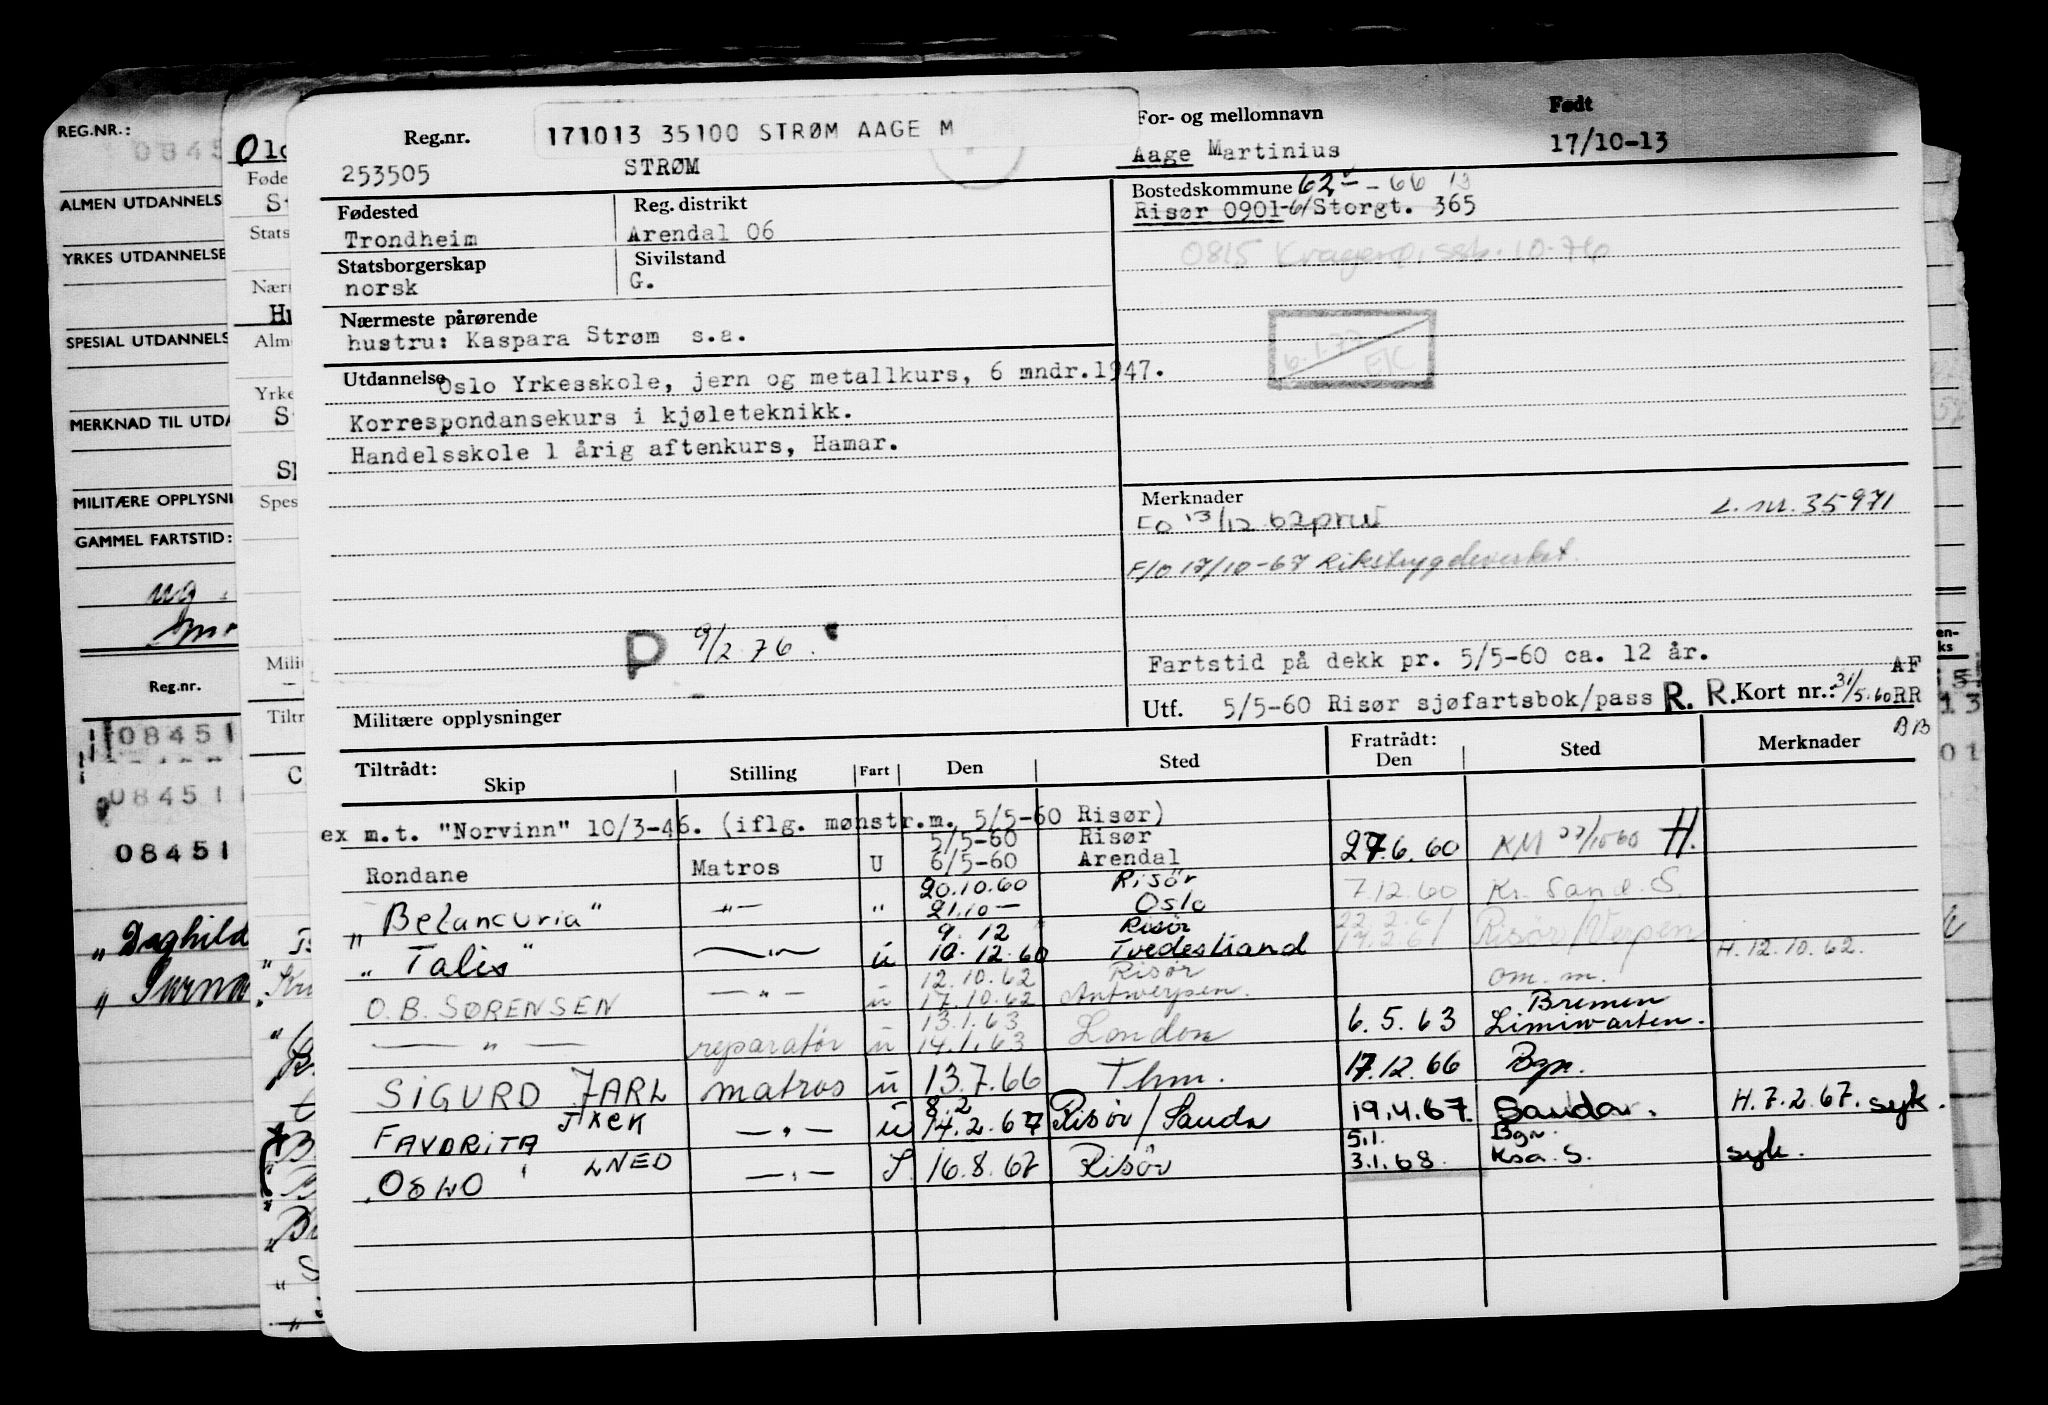 REG.NR.:
0845
ALMEN UTDANNELS
YRKES UTDANNELSE
SPESIAL UTDANNELS
MERKNAD TIL UTDA
MILITÆRE OPPLYSNI
GAMMEL FARTSTID:
Reg.nr.
08451
08451
08451
" Daghild
Reg.nr.
171013 35100 STRØM AAGE M
For- og mellomnavn
Født
253505
STRØM
Aage Martinius
17/10-13
Fødested
Reg. distrikt
Bostedskommune 62 - 66 13
Trondheim
Arendal 06
Risør 0901-61 Storgt. 365
Statsborgerskap
Sivilstand
0815 Kragerø, ssb. 10-76
norsk
G.
Nærmeste pårørende
hustru: Kaspara Strøm s.a.
6.1.77 E/C
Utdannelse Oslo Yrkesskole, jern og metallkurs, 6 mndr.1947.
Korrespondansekurs i kjøleteknikk.
Handelsskole 1 årig aftenkurs, Hamar.
Merknader
L. nr. 35971
Fo 13/12 62
F/O 17/10-67 Rikstrygdeverket.
P 9/2 76.
Fartstid på dekk pr. 5/5-60 ca. 12 år.
AF
Militære opplysninger
Utf. 5/5-60 Risør sjøfartsbok/pass R. R. Kort nr.: 31/5.60 RR
BB
Tiltrådt: Skip
Stilling
Fart
Den
Sted
Fratrådt: Den
Sted
Merknader
ex m.t. "Norvinn" 10/3-46. (iflg. mønstr.m. 5/5-60 Risør)
5/5-60 Risør
Rondane Matros U 6/5-60 Arendal 27.6.60 KM 27/10 60 H.
20.10.60 Risør
"Belancuria" -"- " 21.10- Oslo 7.12.60 Kr. Sand. S.
9. 12 " Risör 22.2.61
"Talis" -"- u 10.12.60 Tvedestrand 17.2.61 Risør/Verpen H. 12.10.62.
12.10.62 Risør
O.B. SØRENSEN -"- u 17.10.62 Antwerpen. om. m.
13.1.63 Bremen
-"- reparatør u 14.1.63 London 6.5.63
SIGURD JARL matros u 13.7.66 Thm. 17.12.66 Bgn.
8.2
FAVORITA u 14.2.67 Risør/Sauda 19.4.67. Saudar. H.7.2.67. syk.
5.1. Bgn.
OSLO -"- S. 16.8.67 Risør 3.1.68. Ksa. S. syk.